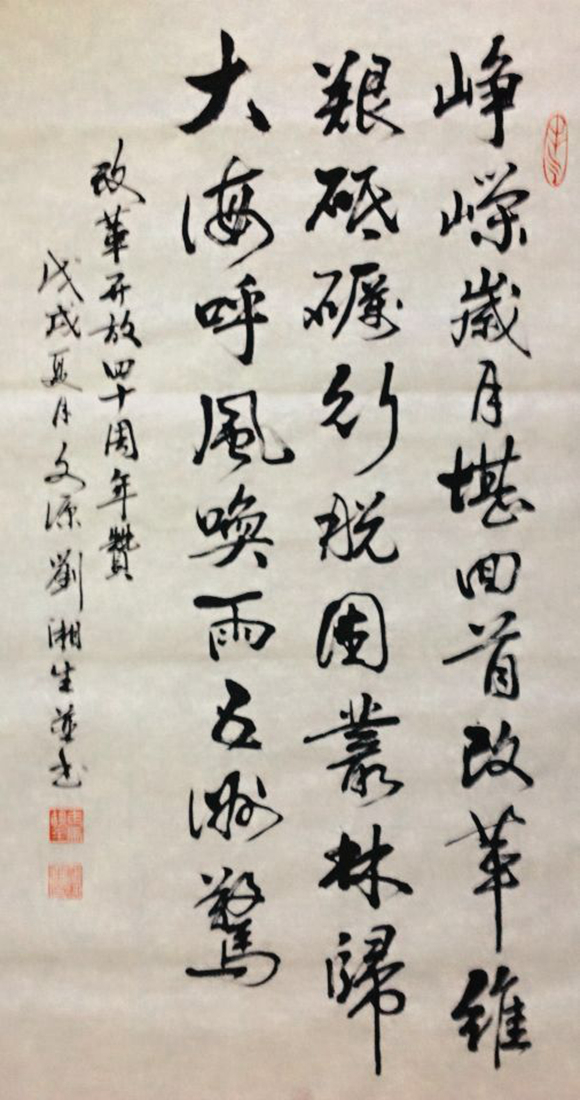 峥嶸歲月堪回首改革維
艱砥礪行脱困叢林歸
大海呼風喚雨五洲驚
改革开放四十周年贊
戊戌夏月文源劉湘生並书